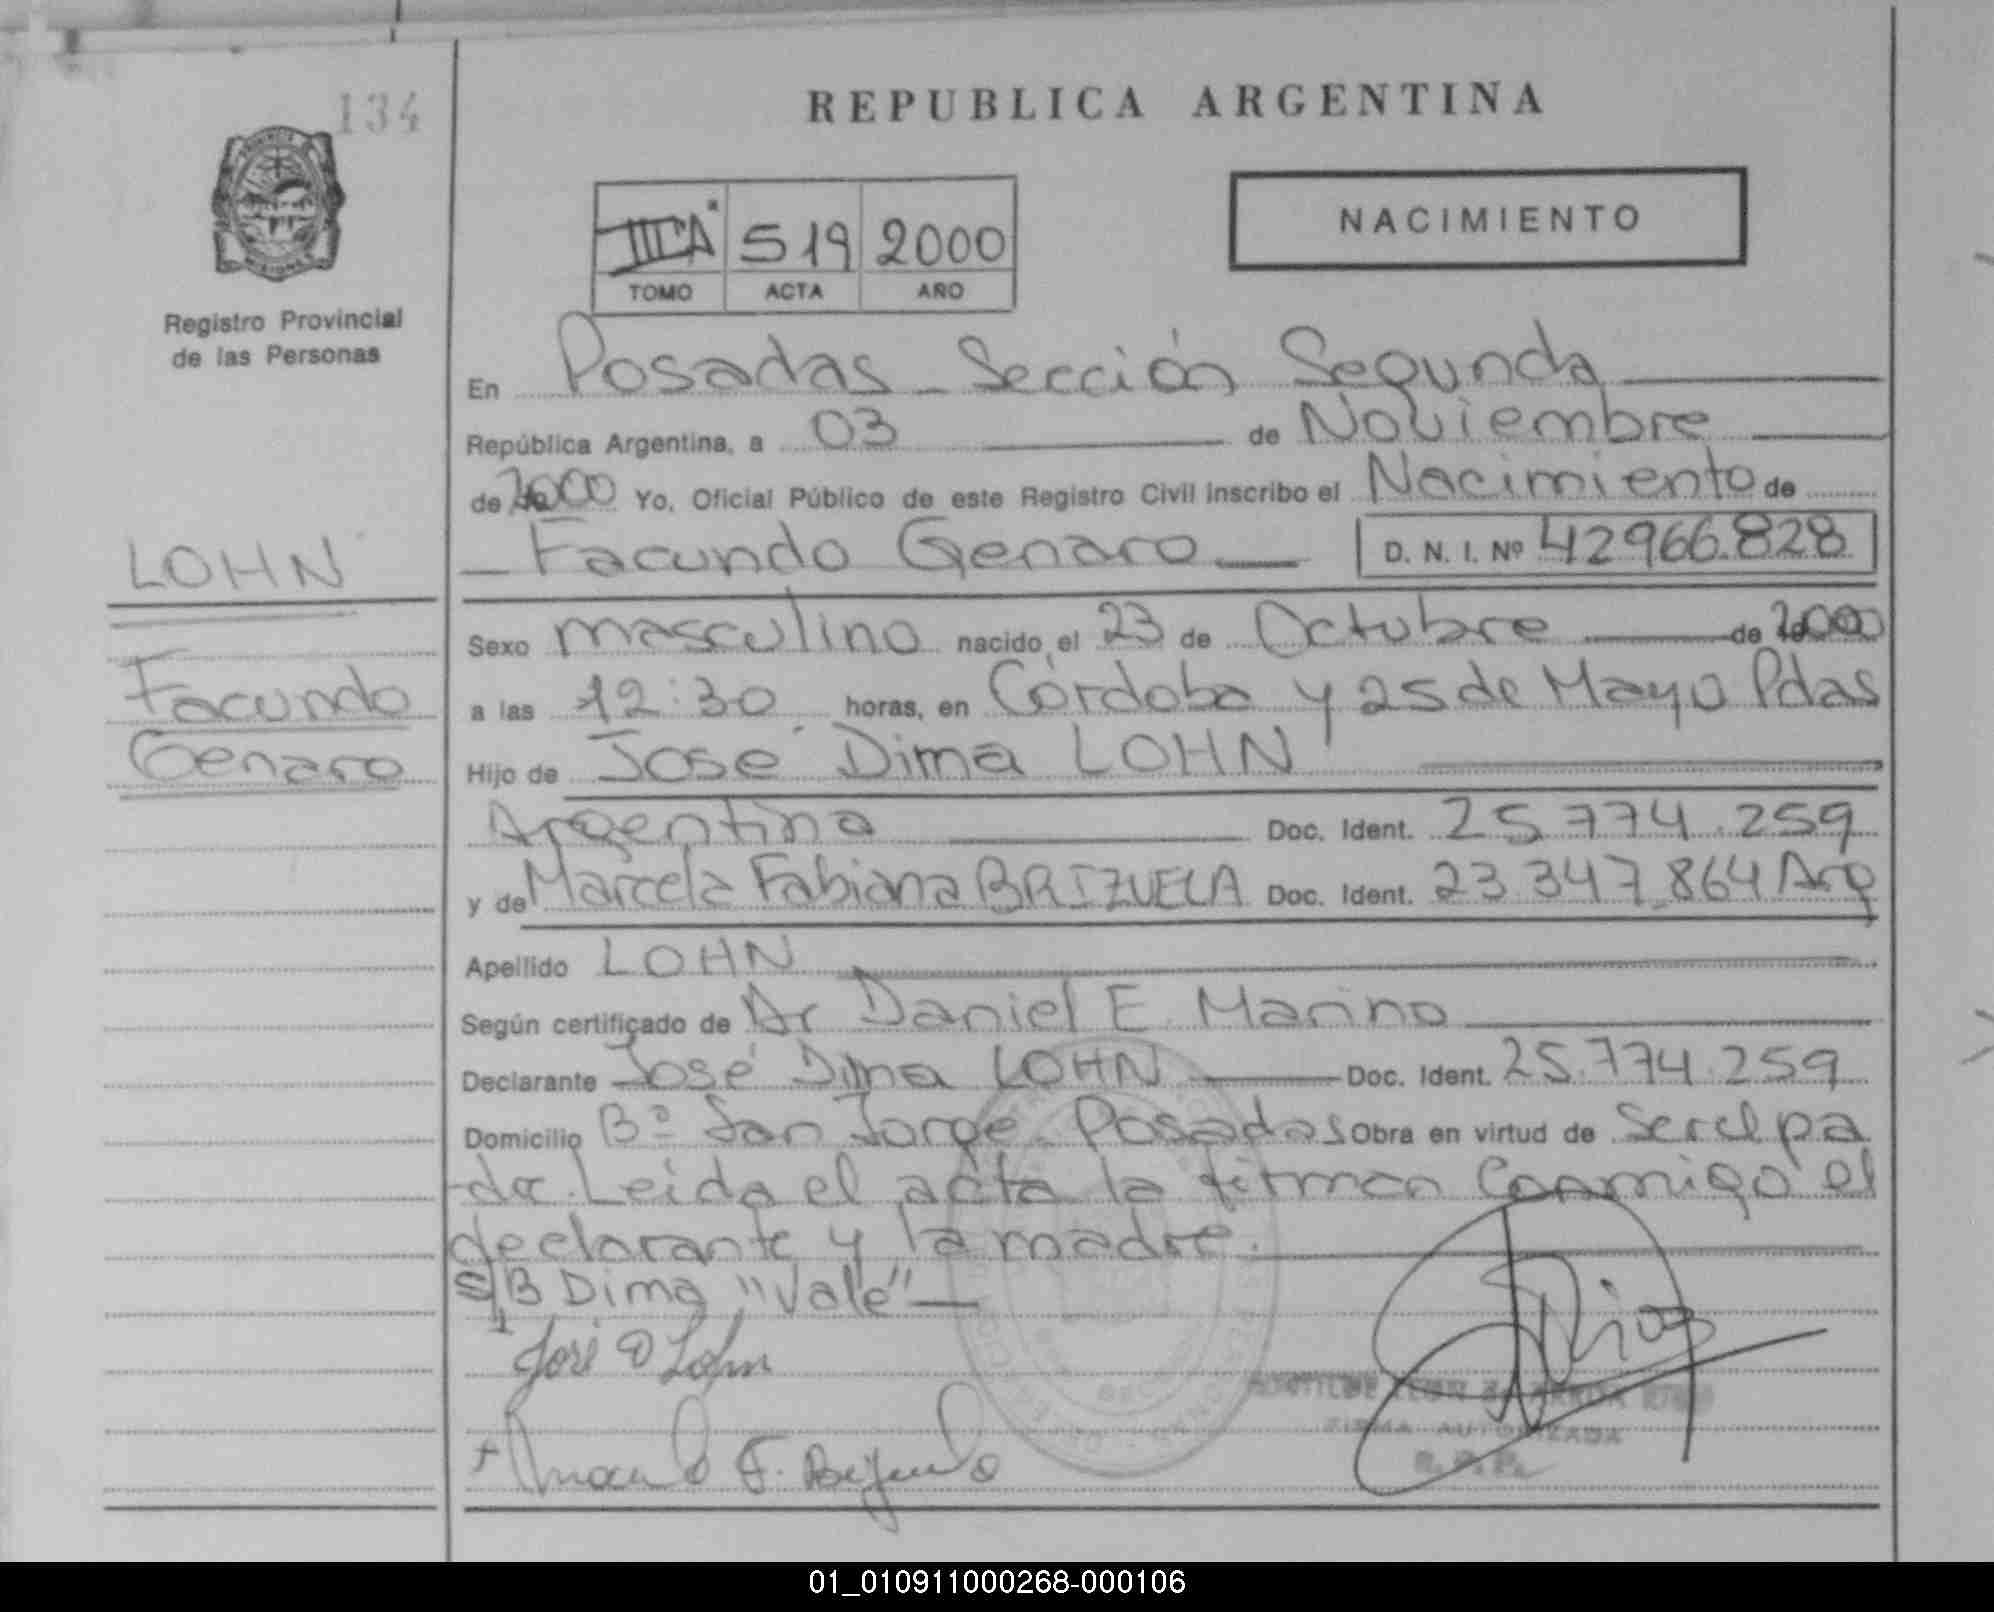 134
REPUBLICA ARGENTINA
NACIMIENTO
519 2000
TOMO ACTA AÑO
Registro Provincial
de las Personas
En Posadas - Sección Segunda
República Argentina, a 03 de Noviembre
de 2000 Yo, Oficial Público de este Registro Civil inscribo el Nacimiento de
Facundo Genaro D. N. I. Nº 42966.828
LOHN
Facundo
Genaro
Sexo masculino nacido el 23 de Octubre de 2000
a las 12:30 horas, en Córdoba y 25 de Mayo Pdas
Hijo de José Dima LOHN
Argentina Doc. Ident. 25.774.259
y de Marcela Fabiana BRIZUELA Doc. Ident. 23.347.864 Arg
Apellido LOHN
Según certificado de Dr Daniel E. Marino
Declarante José Dima LOHN Doc. Ident. 25.774.259
Domicilio Bº San Jorge - Posadas Obra en virtud de
Leida el acta la firman conmigo el
declarante y la madre.
S/B Dima "Vale"
José D Lohn
FIRMA AUTORIZADA
01_010911000268-000106